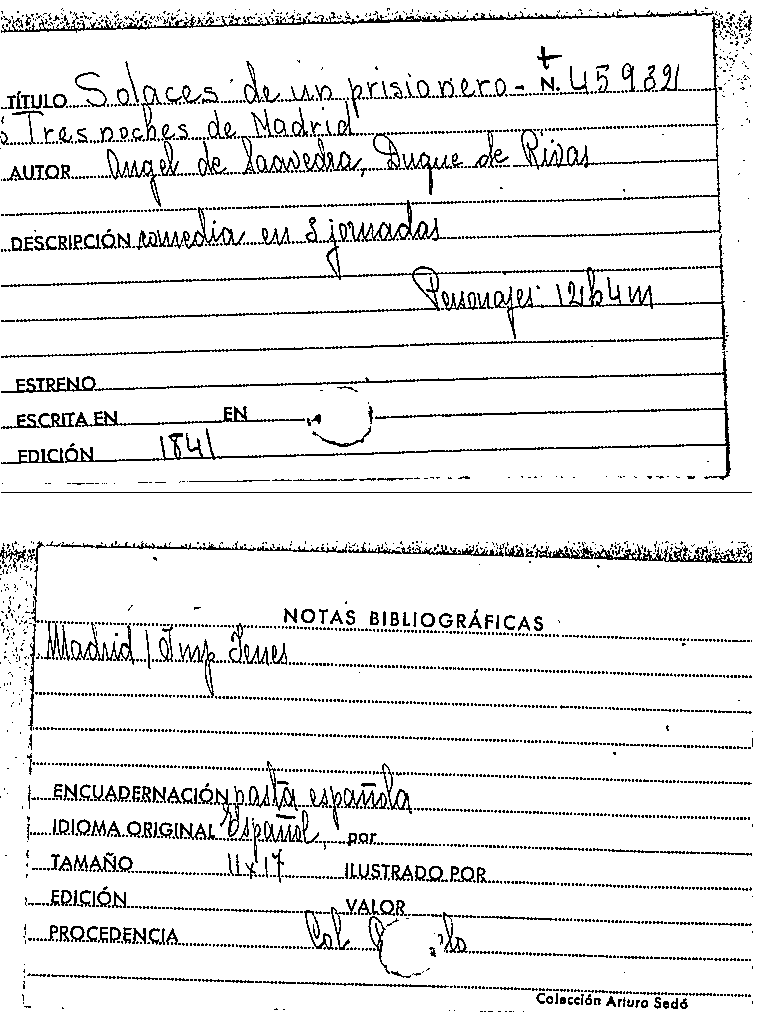 TÍTULO Solaces de un prisionero - N. 45982
Tres noches de Madrid
AUTOR Angel de Saavedra, Duque de Rivas
DESCRIPCIÓN comedia en 3 jornadas
Personajes: 12 h 4 m
ESTRENO
ESCRITA EN EN
EDICIÓN 1841
NOTAS BIBLIOGRÁFICAS
Madrid / Imp Yenes
ENCUADERNACIÓN pasta española
IDIOMA ORIGINAL Español, por
TAMAÑO 11 x 17 ILUSTRADO POR
EDICIÓN VALOR
PROCEDENCIA Col
Colección Arturo Sedó